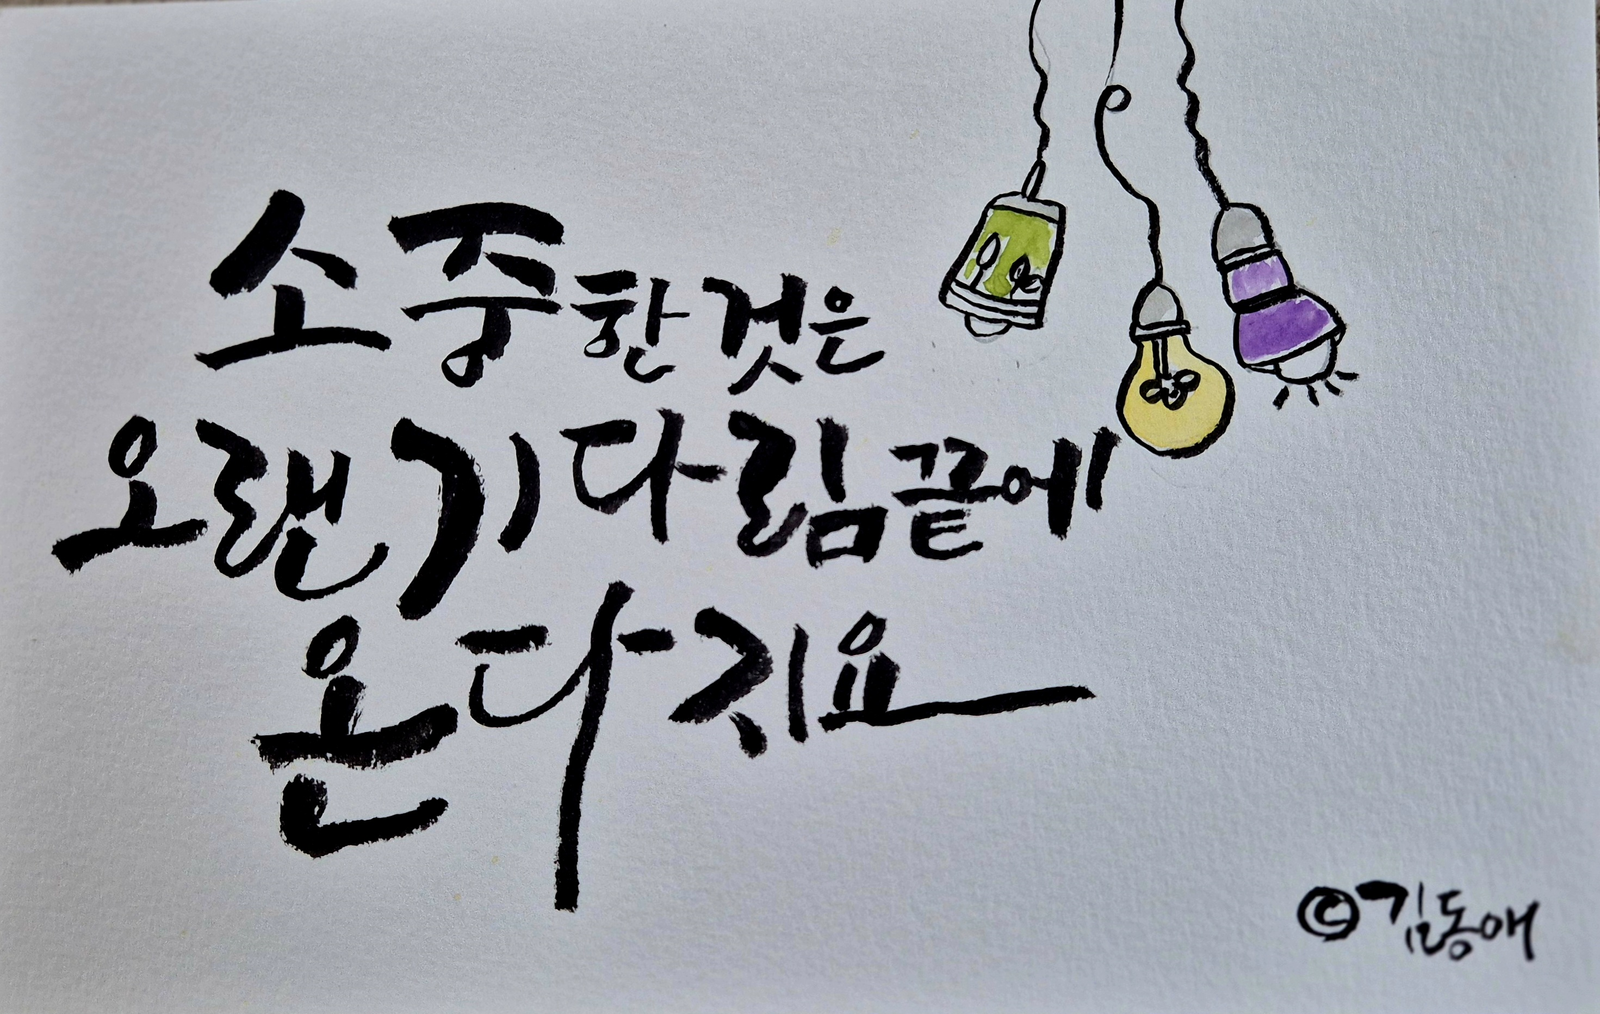 소중한 것은
오랜 기다림 끝에
온다지요
©김동애